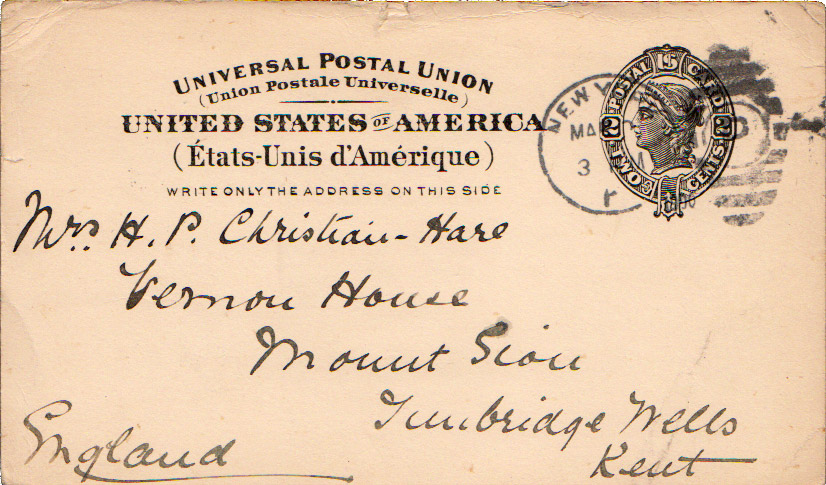 UNIVERSAL POSTAL UNION
(Union Postale Universelle)
UNITED STATES OF AMERICA
(États-Unis d'Amérique)
WRITE ONLY THE ADDRESS ON THIS SIDE
POSTAL CARD
2 2
TWO CENTS
NEW
3
Mrs. H. P. Christian-Hare
Vernon House
Mount Sion
Tunbridge Wells
Kent
England